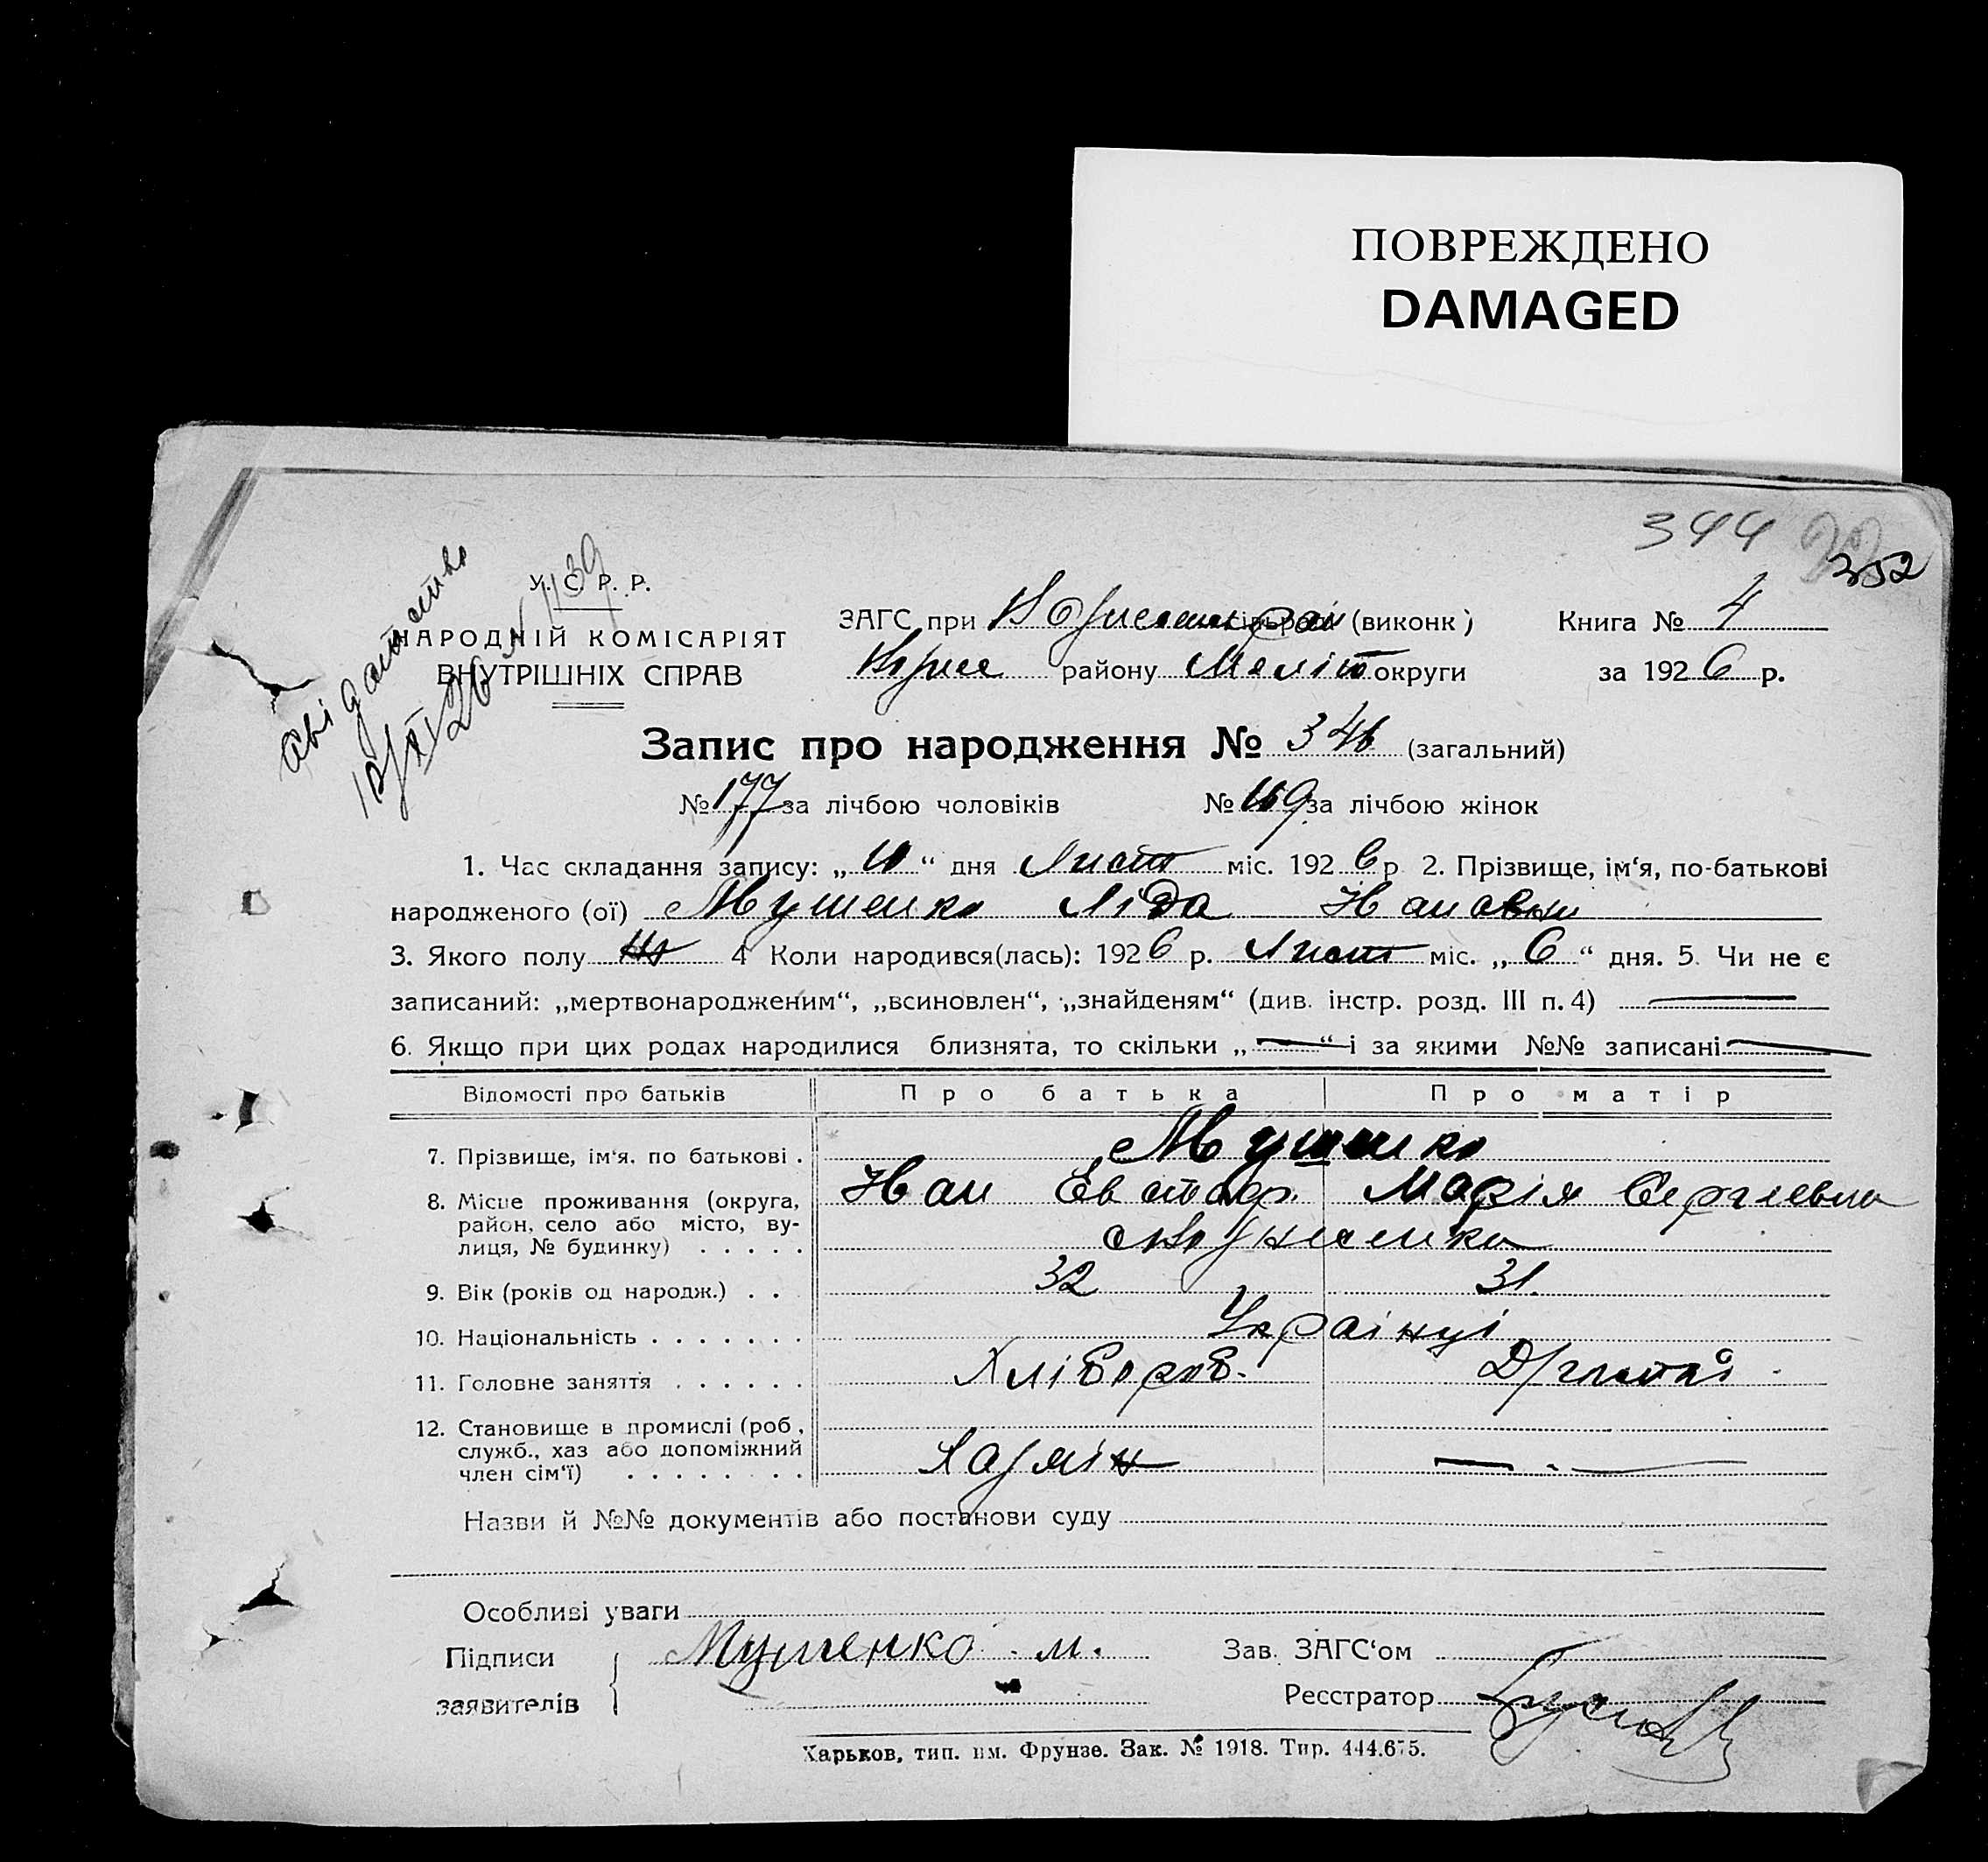 ПОВРЕЖДЕНО
DAMAGED
344
352
Свідоцтво
У. С. Р. Р.
НАРОДНІЙ КОМІСАРІЯТ
ВНУТРІШНІХ СПРАВ
ЗАГС при (виконк) Книга № 4
району Меліт округи за 1926 р.
Запис про народження № 346 (загальний)
№ 177 за лічбою чоловіків № 169 за лічбою жінок
1. Час складання запису: „ “ дня Лист міс. 1926 р 2. Прізвище, ім‘я, по-батькові
народженого (ої) Мушенко Ліда Ивановни
3. Якого полу 4 Коли народився(лась): 1926 р. Лист міс. „6“ дня. 5. Чи не є
записаний: „мертвонародженим“, „всиновлен“, „знайденям“ (див. інстр. розд. III п. 4)
6. Якщо при цих родах народилися близнята, то скільки „ “ і за якими №№ записані
Відомості про батьків Про батька Про матір
7. Прізвище, ім‘я, по батькові . Мушенко
Иван Евстаф. Марія Сергіевна
8. Місце проживання (округа,
район, село або місто, ву-
лиця, № будинку) . . . . . Вознесенка
9. Вік (років од народж.) . . 32 31.
10. Національність . . . . . . . Українці
11. Головне заняття . . . . . . Хлібороб.
12. Становище в промислі (роб,
служб., хаз або допоміжний
член сім‘ї) . . . . . . . . Хазяїн
Назви й №№ документів або постанови суду
Особливі уваги
Підписи Мушенко. м. Зав. ЗАГС‘ом
заявителів Реєстратор
Харьков, тип. им. Фрунзе. Зак. № 1918. Тир. 444.675.